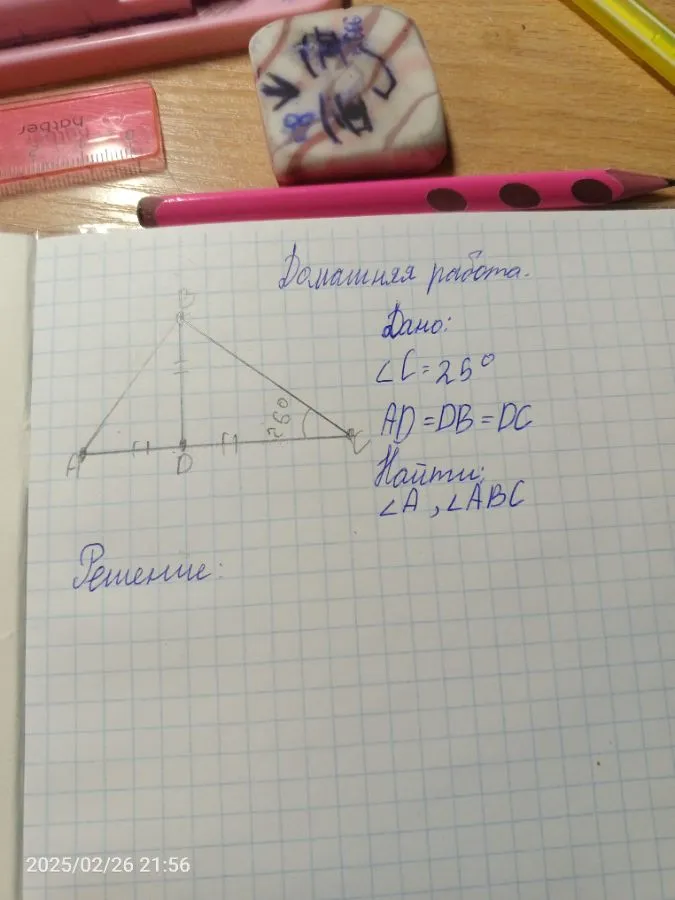 hatber
Домашняя работа.
Дано:
∠C = 25°
AD = DB = DC
Найти:
∠A, ∠ABC
B
25°
A
D
C
Решение:
2025/02/26 21:56